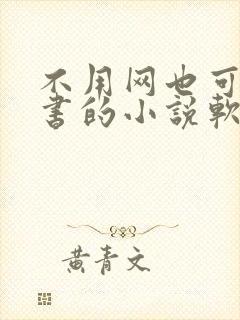 不用网也可
书的小说软
黄青文